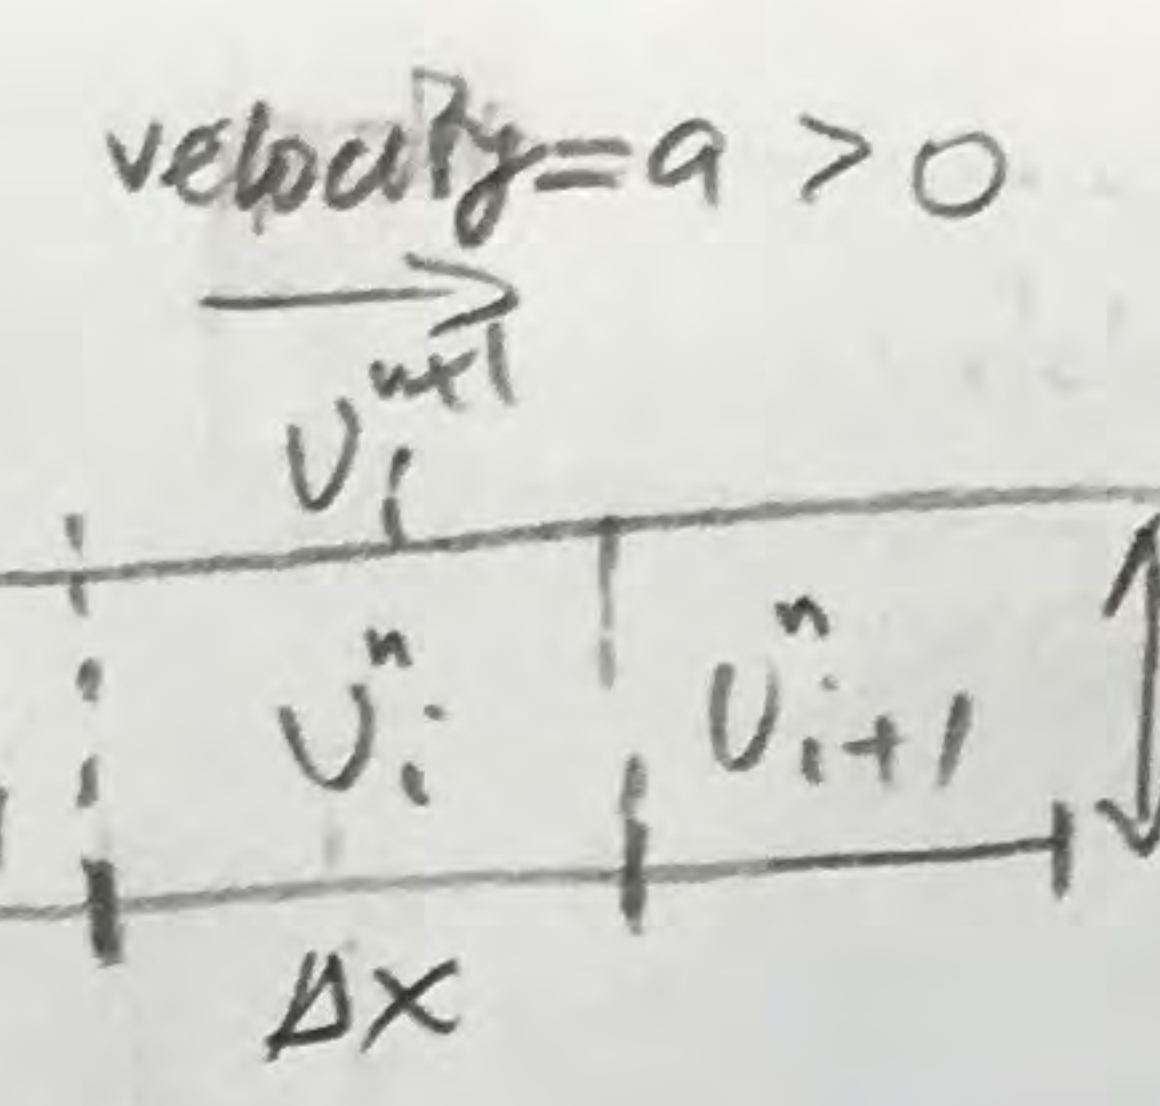 velocity = a > 0
U_i^{n+1}
U_i^n U_{i+1}^n
Δx